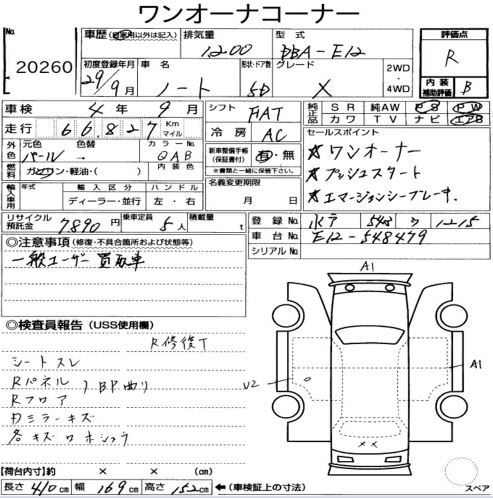 ワンオーナーコーナー
No.
20260
車歴 (自家用以外は記入)
排気量
1200
型式
DBA-E12
評価点
R
内装
補助評価
B
初度登録年月
29年 9月
車名
ノート
形状・ドア数
5D
グレード
X
2WD
・
4WD
車検 4年 9月
シフト
FAT
純正品
SR 純AW PS PW
カワ TV ナビ エアB
走行 66,827 Km マイル
冷房
AC
セールスポイント
★ワンオーナー
★プッシュスタート
★エマージョンシーブレーキ.
外色
元色 色替 カラーNo.
パール QAB
燃料
ガソリン・軽油・( )
内装色
新車整備手帳
(保証書付)
有・無
※書類と一緒に保管して下さい。
名義変更期限
月 日
輸入車用
年式 輸入区分 ハンドル
ディーラー・並行 左・右
リサイクル預託金 7890円
乗車定員 5人
積載量 t
登録No. 水戸 548 ウ 1215
車台No. E12-548479
シリアルNo.
◎注意事項 (修復・不具合箇所および状態等)
一般ユーザー買取車
◎検査員報告 (USS使用欄)
R修復T
シートスレ
Rパネル
Rフロア
内ミラーキズ
A1
U2
A1
××
【荷台内寸】 × × (cm)
長さ 410cm 幅 169cm 高さ 152cm ←(車検証上の寸法)
スペア